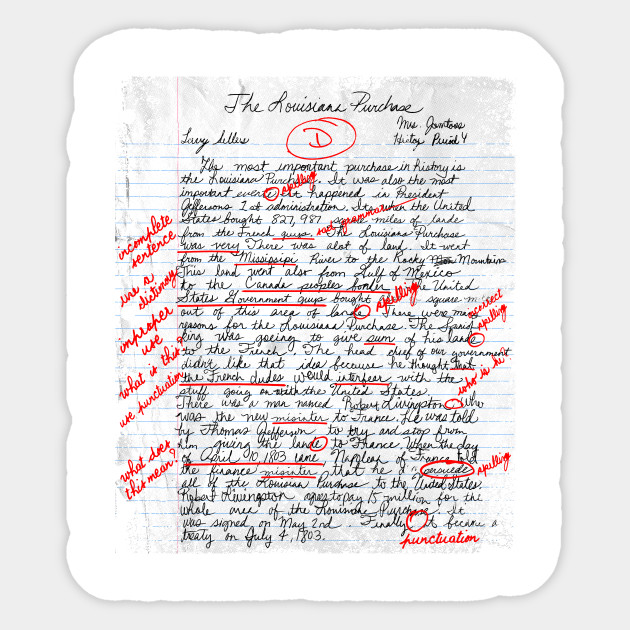 The Louisiana Purchase
D
Mrs. Jamtoss
Larry Selles
History Period 4
The most important purchase in history is
the Louisiana Purchase. It was also the most
important evente It happened in President
spelling
Jeffersons 1st administration. Its when the United
States bought 827,987 square miles of lande
use grammar
from the French guys. The Louisiana Purchase
was very There was alot of land. It went
incomplete
sentence
from the Mississipi River to the Rocky Mountains
This land went also from Gulf of Mexico
to the Canada peoples border the United
use a
dictionary
States Government guys bought square
spelling
out of this area of lande There were
improper
use
incorrect
spelling
reasons for the Louisiana Purchase. The
king was goeing to give sum of his lande
to the French. The head chef of our government
what is this
didn't like that idea because he thought that
the French dudes would interfear with the
who is he
use punctuation
stuff going on with the United States.
There was a man named Robert Livingston Who
was the new misinter to France. He was told
by Thomas Jefferson to try and stop from
him giving the lande to France. When the day
of April 10, 1803 came Napolean of France told
what does
this mean?
the finance misinter that he persuede
spelling
all of the Louisiana Purchase to the United States.
Robert Livengston agees to pay 15 million for the
whole area of the Louisiana Purchase. It
was signed on May 2nd Finally it became a
treaty on July 4, 1803.
punctuation